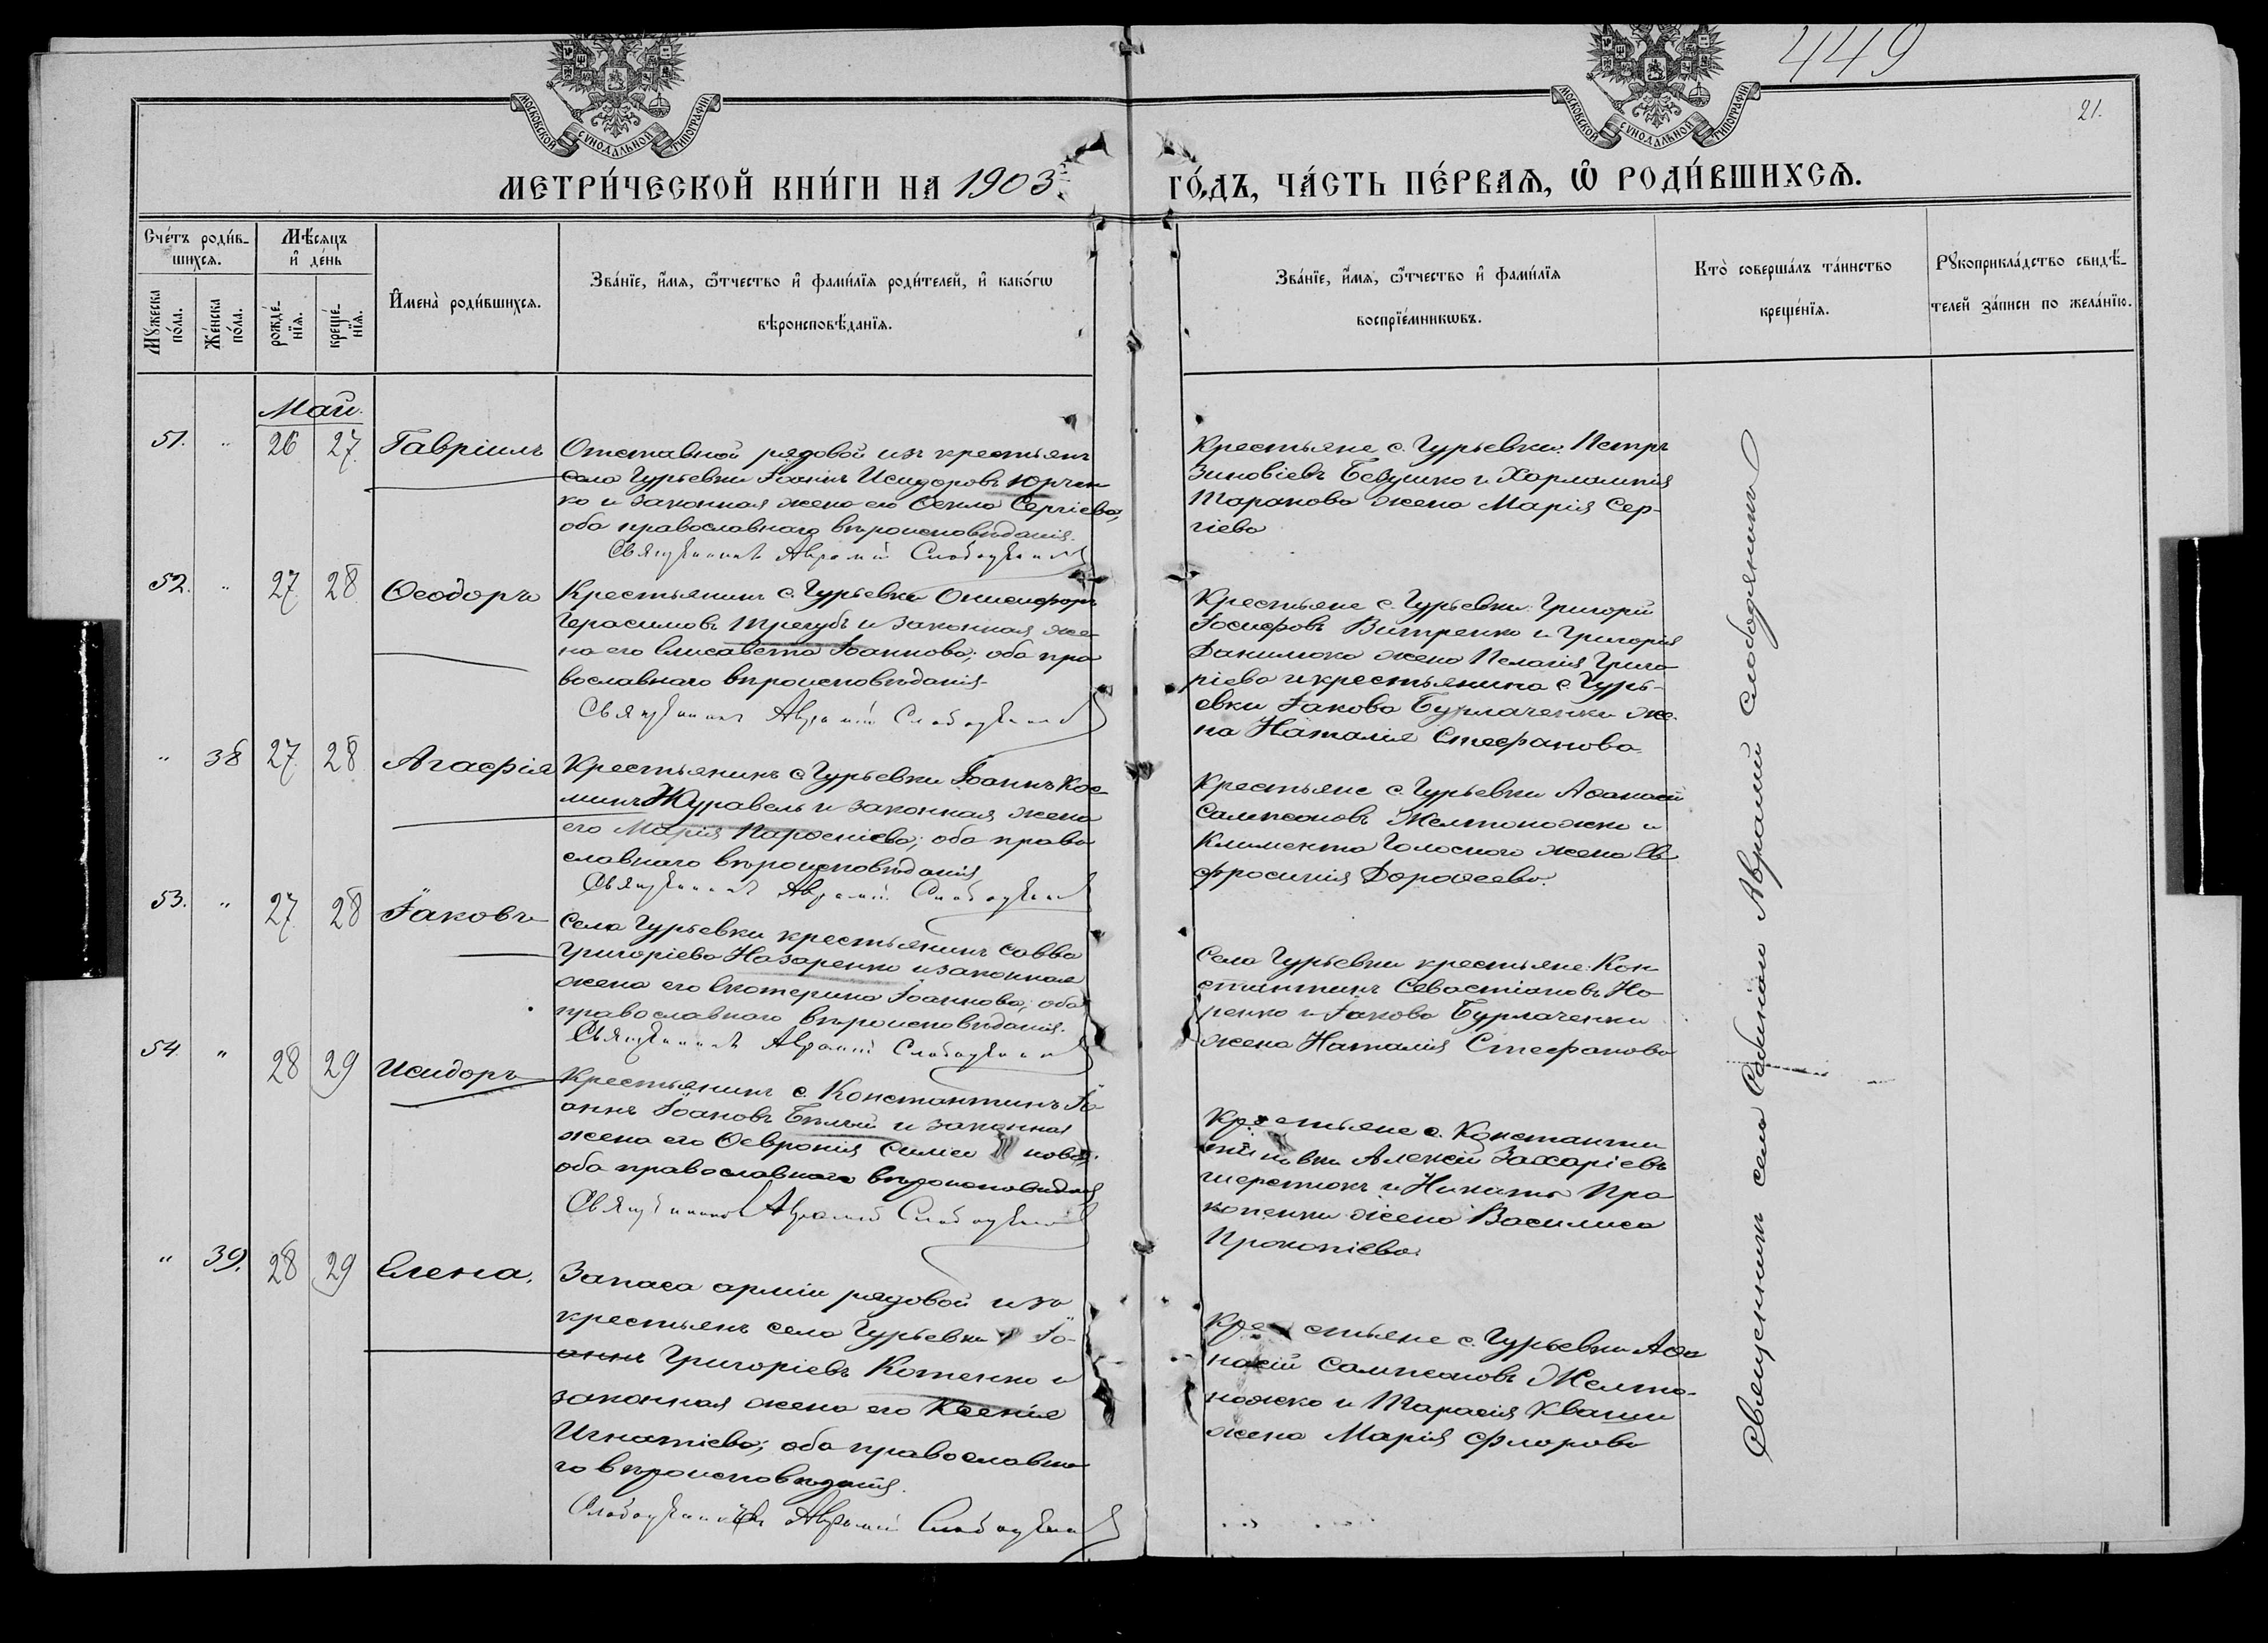 449
21.
МОСКОВСКОЙ СѴНОДАЛЬНОЙ ТИПОГРАФІИ
МОСКОВСКОЙ СѴНОДАЛЬНОЙ ТИПОГРАФІИ
МЕТРИ́ЧЕСКОЙ КНИ́ГИ НА 1903
ГО́ДЪ, ЧА́СТЬ ПЕ́РВАѦ, Ѡ РОДИ́ВШИХСѦ.
Сче́тъ роди́в-
шихсѧ.
Мꙋжеска по́ла.
Же́нска по́ла.
Мѣ́сѧцъ
и де́нь
рожде́-
нїѧ.
креще́-
нїѧ.
Имена̀ роди́вшихсѧ.
Зва́нїе, и́мѧ, ѻ́тчество и фами́лїѧ роди́телей, и како́гѡ
вѣроисповѣ́данїѧ.
Зва́нїе, и́мѧ, ѻ́тчество и фами́лїѧ
воспрїе́мникѡвъ.
Кто̀ соверша́лъ та́инство
креще́нїѧ.
Рꙋкоприкла́дство свидѣ́-
телей за́писи по жела́нїю.
Май.
51. " 26 27 Гавріилъ
Отставной рядовой изъ крестьянъ
села Гурьевки Іоаннъ Исидоровъ Юрчен
ко и законная жена его Ѳекла Сергіева,
оба православнаго вѣроисповѣданія.
Священникъ Аврамій Слободяникъ
Крестьяне с. Гурьевки: Петръ
Зиновіевъ Бездушко и Харлампія
Таранова жена Марія Сер-
гіева
52. " 27 28 Ѳеодоръ
Крестьянинъ с. Гурьевки Онисифоръ
Герасимовъ Трегубъ и законная же-
на его Елисавета Іоаннова; оба пра
вославнаго вѣроисповѣданія.
Священникъ Аврамій Слободяникъ
Крестьяне с. Гурьевки: Григорій
Іосифовъ Витренко и Григорія
Данилюка жена Пелагія Григо
ріева и крестьянина с. Гурь-
евки Іакова Бурлаченки же-
на Наталія Стефанова
" 38 27 28 Агафія
Крестьянинъ с. Гурьевки Іоаннъ Кос-
минъ Журавель и законная жена
его Марія Пароеніева; оба право
славнаго вѣроисповѣданія
Священникъ Аврамій Слободяникъ
Крестьяне с. Гурьевки Аѳанасій
Сампсоновъ Желтоножко и
Климента Голоснаго жена Ев-
фросинія Дороѳеева.
53. " 27 28 Іаковъ
Села Гурьевки крестьянинъ Савва
Григоріевъ Назаренко и законная
жена его Екатерина Іоаннова; оба
православнаго вѣроисповѣданія.
Священникъ Аврамій Слободяникъ
Села Гурьевки крестьяне: Кон
стантинъ Севастіановъ На-
ренко и Іакова Бурлаченки
жена Наталія Стефанова
54. " 28 29 Исидоръ
Крестьянинъ с. Константинъ Іо
аннъ Іоановъ Бѣлый и законная
жена его Ѳевронія Симео нова;
оба православнаго вѣроисповѣданія
Священникъ Аврамій Слободяникъ
Крестьяне с. Константи
новки Алексій Захаріевъ
Шерстюкъ и Никиты Про
копенки жена Василиса
Прокопіева.
" 39. 28 29 Елена.
Запаса арміи рядовой изъ
крестьянъ села Гурьевки Іо-
аннъ Григоріевъ Котенко и
законная жена его Ксенія
Игнатіева; оба православна
го вѣроисповѣданія.
Аврамій Слободяникъ
Крестьяне с. Гурьевки Аѳа
насій Сампсоновъ Желто-
ножко и Тарасія Кваши
жена Марія Флорова
Священникъ села Аврамій Слободяникъ